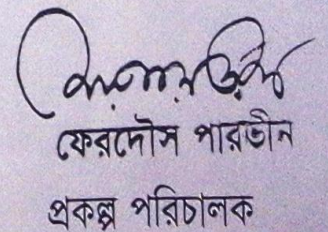 ফেরদৌস পারভীন
প্রকল্প পরিচালক